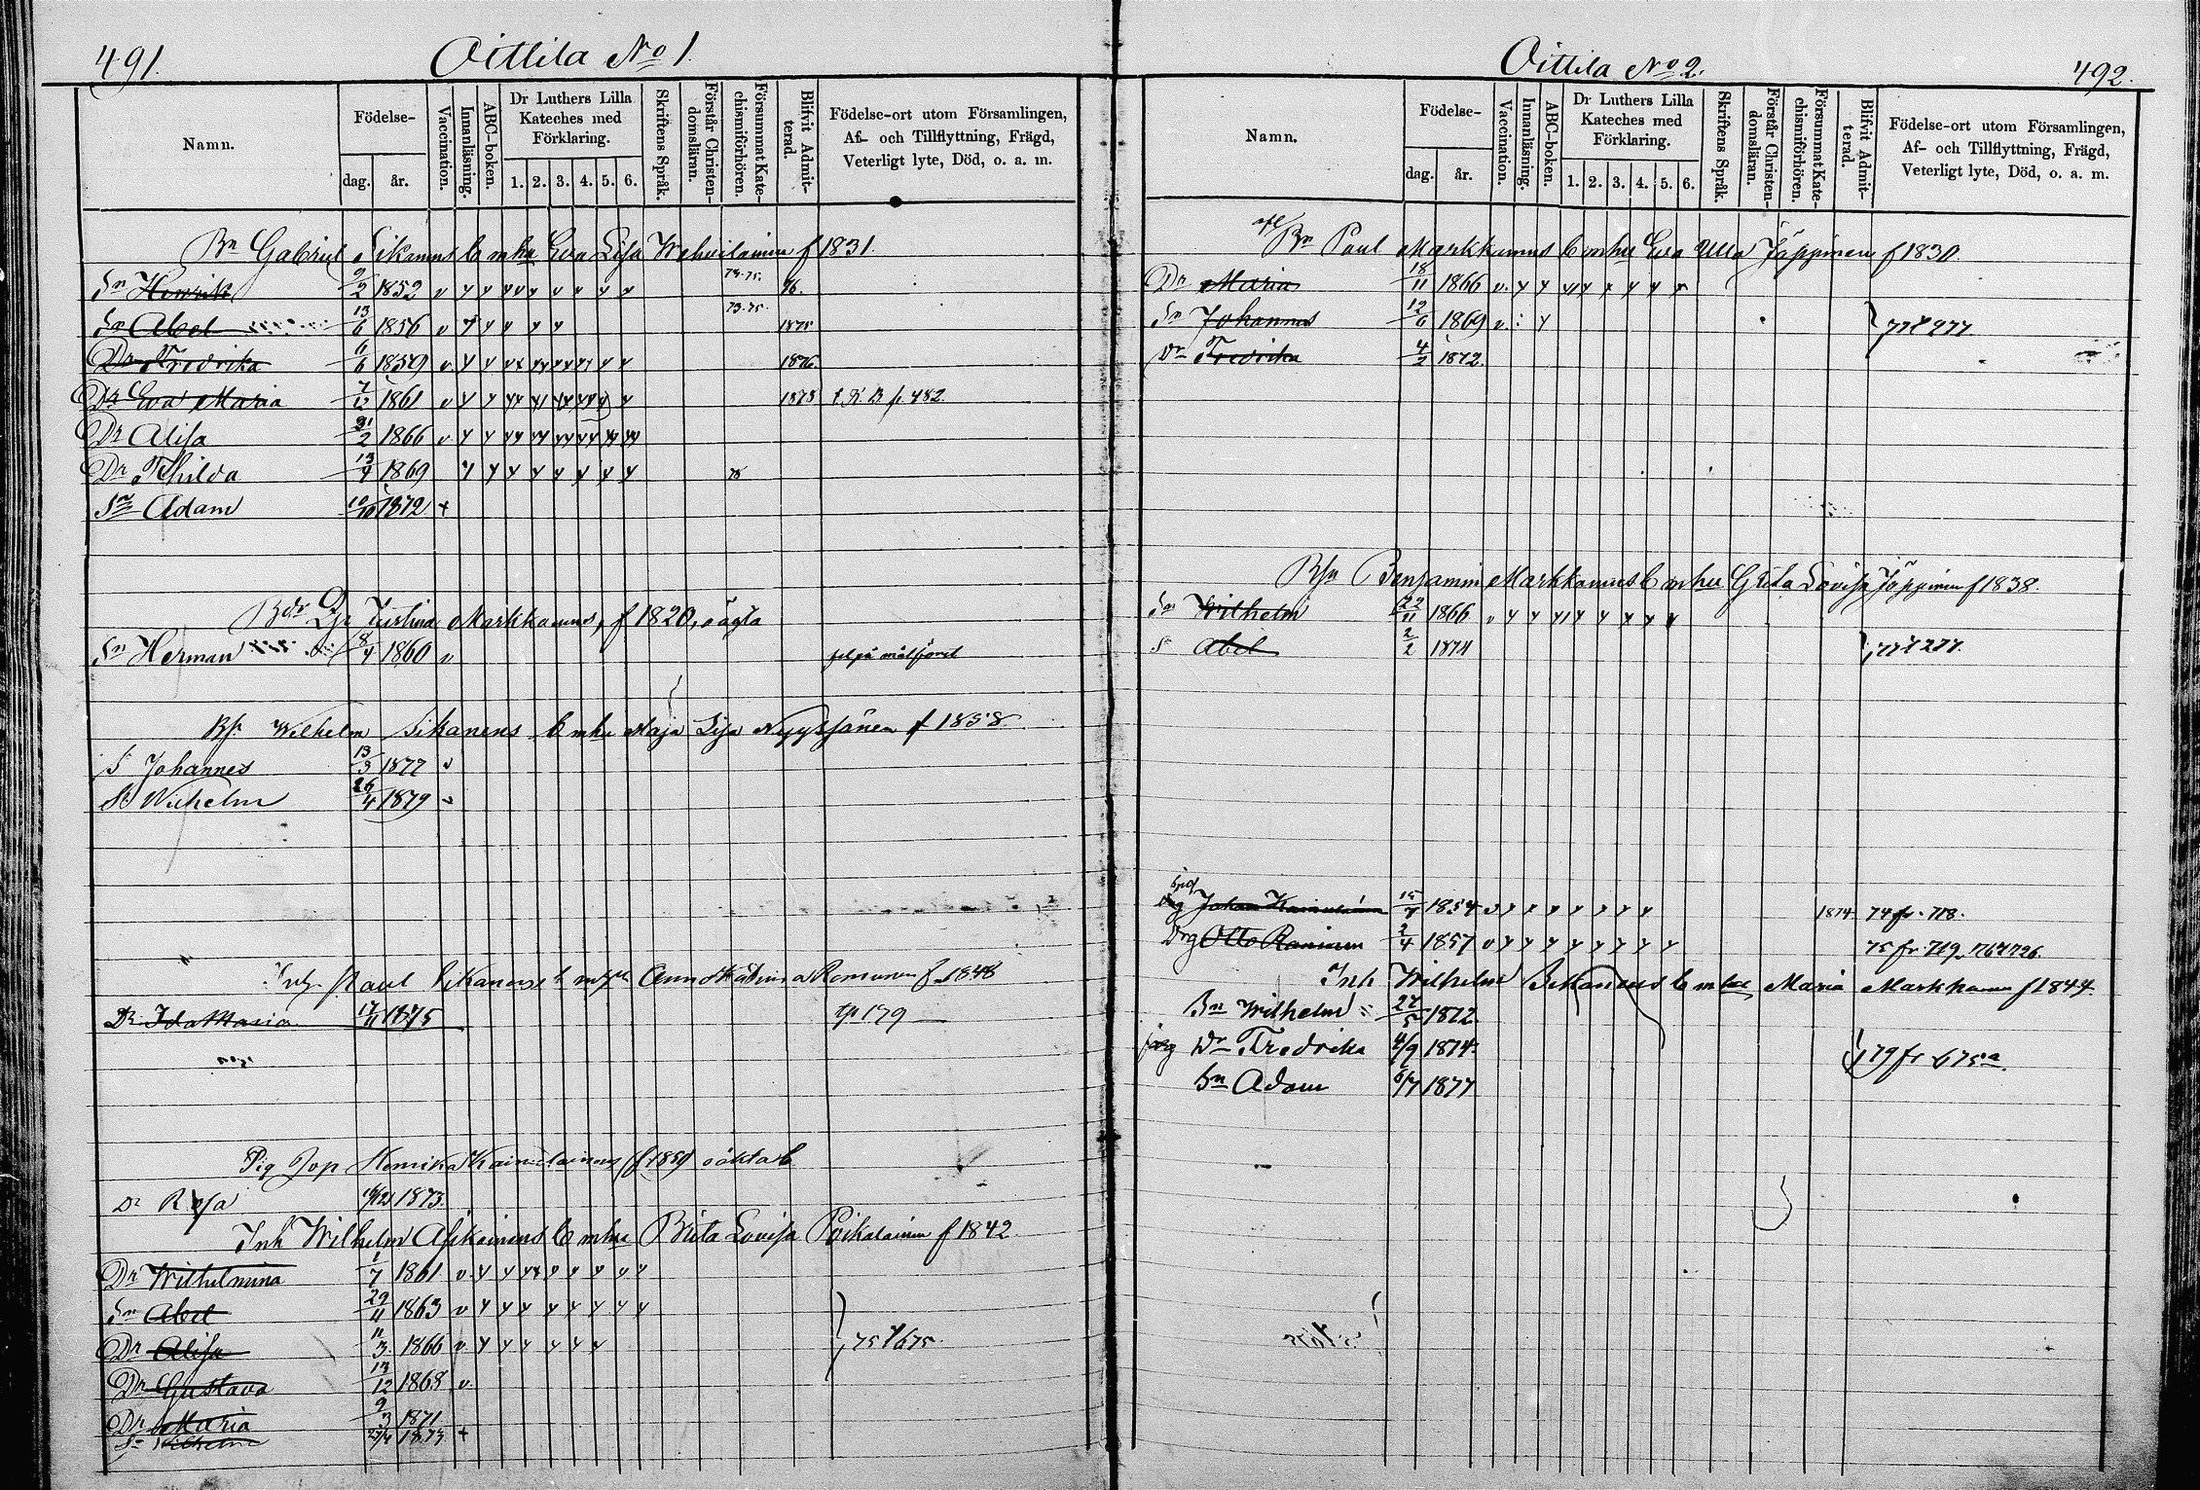 491.
Oittila No 1.
Namn.
Födelse-
dag.
år.
Vaccination.
Innanläsning.
ABC-boken.
Dr Luthers Lilla Kateches med Förklaring.
1. 2. 3. 4. 5. 6.
Skriftens Språk.
Förstår Christen-domsläran.
Försummat Kate-chismiförhören.
Blifvit Admit-terad.
Födelse-ort utom Församlingen, Af- och Tillflyttning, Frägd, Veterligt lyte, Död, o. a. m.
Bn Gabriel Sikanens b m hu Eva Lisa Wehvilainen f 1831.
Sn Henrik 9/2 1852 v 73-75. 76.
Sn Abel 13/6 1856 v 73-75. 1875
Dr Fredrika 6/6 1859 v 1876.
Dr Eva Maria 7/12 1861 v 1878 t. K. B p. 482.
Dr Alisa 21/2 1866 v
Dr Thilda 13/4 1869 78
Sn Adam 10/10 1872 +
Bdr Justina Markkanens, f 1820, oägta
Sn Herman 8/4 1860 v fel på målföret
Bs Wilhelm Sikanens b m hu Maja Lisa Nyyssönen f 1858
S Johannes 13/3 1877 v
Sn Wilhelm 26/4 1879 v
Inh. Paul Sikanens b m hu Anna Katarina Romunen f 1848
Dr Ida Maria 17/11 1875 tp 179
Pig Henrika Kainulainens f 1859 oäkta b
Dr Rosa 16/12 1873.
Inh Wilhelm Asikainens b m hu Brita Lovisa Poikalainen f 1842
Dr Wilhelmina 1/7 1861 v
Sn Abel 29/11 1863 v
Dr Alisa 11/3 1866 v 75 t 675.
Dr Gustava 13/12 1868 v.
Dr Maria 9/3 1871
Sn Wilhelm 27/4 1873 +
Oittila No 2.
492.
Namn.
Födelse-
dag.
år.
Vaccination.
Innanläsning.
ABC-boken.
Dr Luthers Lilla Kateches med Förklaring.
1. 2. 3. 4. 5. 6.
Skriftens Språk.
Förstår Christen-domsläran.
Försummat Kate-chismiförhören.
Blifvit Admit-terad.
Födelse-ort utom Församlingen, Af- och Tillflyttning, Frägd, Veterligt lyte, Död, o. a. m.
Bn Paul Markkanens b m hu Eva Ulla Jäppinen f 1830.
Dr Maria 18/11 1866 v.
Sn Johannes 12/6 1869 v 77 t 277
Dr Fredrika 4/2 1872.
Bsn Benjamin Markkanens b m hu Greta Lovisa Jäppinen f 1838.
Sn Wilhelm 22/11 1866 v
S Abel 2/2 1874 77 t 277.
Johan Kainulainen 15/7 1854 v 1874 74 fr. 718.
Drg Otto Raninen 2/4 1857 v 75 fr 719. 76 t 726.
Inh Wilhelm Sikanens b m hu Maria Markkanen f 1844.
Sn Wilhelm 27/5 1872
Dr Fredrika 4/9 1874. 79 fr 675a.
Sn Adam 6/7 1877